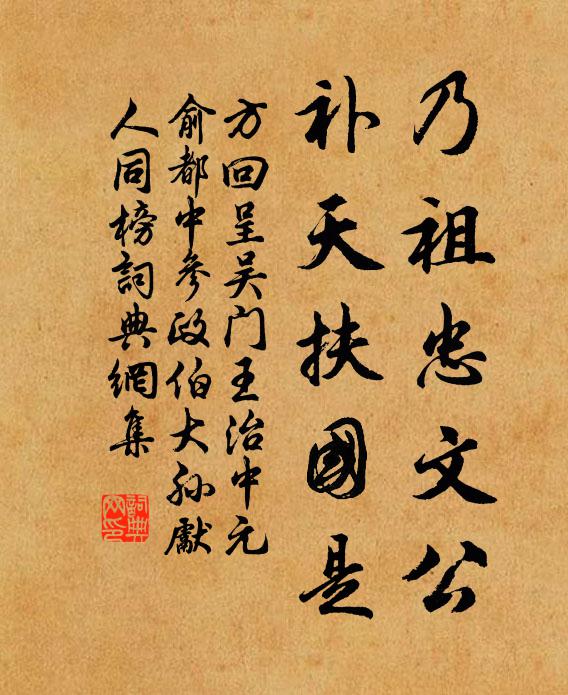 乃祖忠文公
补天扶國是
方回呈吴门王治中元
俞都中參政伯大孙獻
人同榜詞典網集
詞典网印